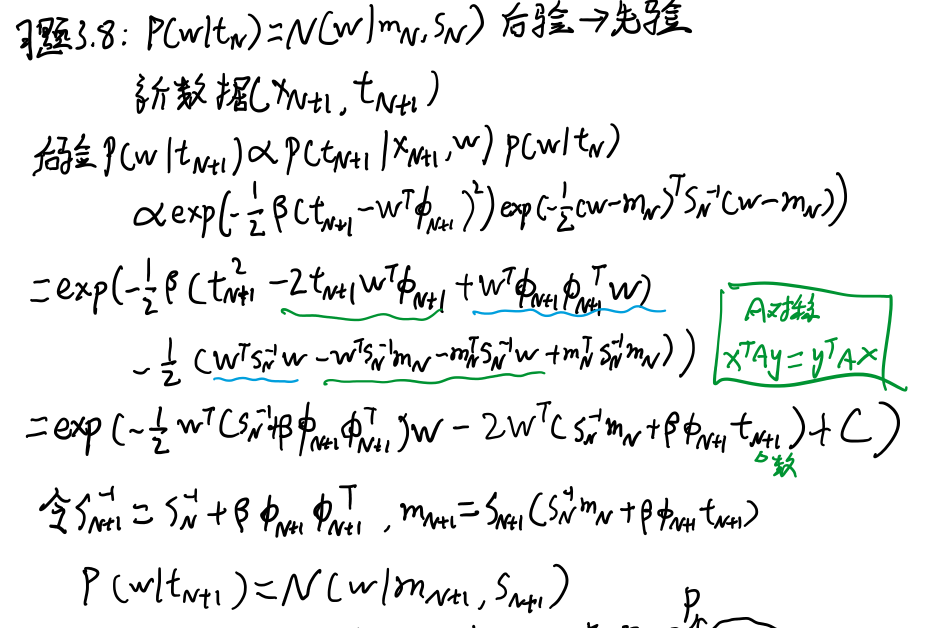 习题3.8: P(w|t_N)=N(w|m_N, S_N) 后验→先验
新数据(x_{N+1}, t_{N+1})
后验P(w|t_{N+1})∝P(t_{N+1}|x_{N+1}, w) p(w|t_N)
∝exp(-1/2 β(t_{N+1}-w^Tϕ_{N+1})^2) exp(-1/2(w-m_N)^T S_N^{-1}(w-m_N))
=exp(-1/2 β(t_{N+1}^2-2t_{N+1}w^Tϕ_{N+1}+w^Tϕ_{N+1}ϕ_{N+1}^T w)
-1/2 (w^T S_N^{-1}w-w^T S_N^{-1}m_N-m_N^T S_N^{-1}w+m_N^T S_N^{-1}m_N))
A对称
x^TAy=y^TAx
=exp(-1/2 w^T(S_N^{-1}+βϕ_{N+1}ϕ_{N+1}^T)w-2w^T(S_N^{-1}m_N+βϕ_{N+1}t_{N+1})+C)
数
令S_{N+1}^{-1}=S_N^{-1}+βϕ_{N+1}ϕ_{N+1}^T, m_{N+1}=S_{N+1}(S_N^{-1}m_N+βϕ_{N+1}t_{N+1})
P(w|t_{N+1})=N(w|m_{N+1}, S_{N+1})